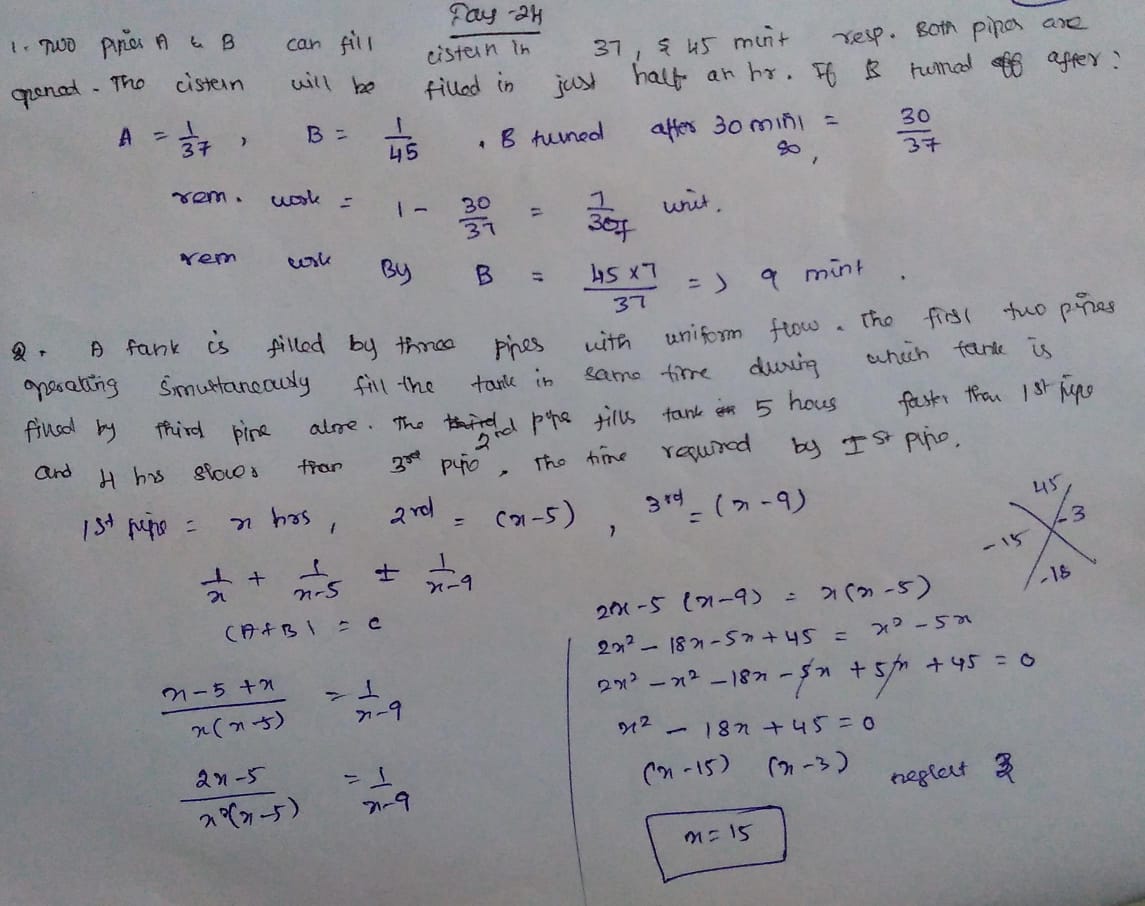 Day-24
1. Two pipes A & B can fill cistern in 37, & 45 mint resp. Both pipes are
opened. The cistern will be filled in just half an hr. If B turned off after?
A = 1/37, B = 1/45. B turned after 30 mini = 30/37
so,
rem. work = 1 - 30/37 = 7/37 unit.
rem work By B = 45 x 7/37 => 9 mint.
2. A tank is filled by three pipes with uniform flow. The first two pipes
operating simultaneously fill the tank in same time during which tank is
filled by third pipe alone. The 2nd pipe fills tank 5 hous faster than 1st pipe
and 4 hrs slower than 3rd pipe, The time required by Ist pipe.
1st pipe = x hrs, 2nd = (x-5), 3rd = (x-9)
45
-15 -3
-18
1/x + 1/x-5 ± 1/x-9
(A+B) = c
x-5+x/x(x-5) = 1/x-9
2x-5/x(x-5) = 1/x-9
2x-5 (x-9) = x(x-5)
2x² - 18x - 5x + 45 = x² - 5x
2x² - x² - 18x - 5x + 5x + 45 = 0
x² - 18x + 45 = 0
(x-15) (x-3) neglect 3
x = 15